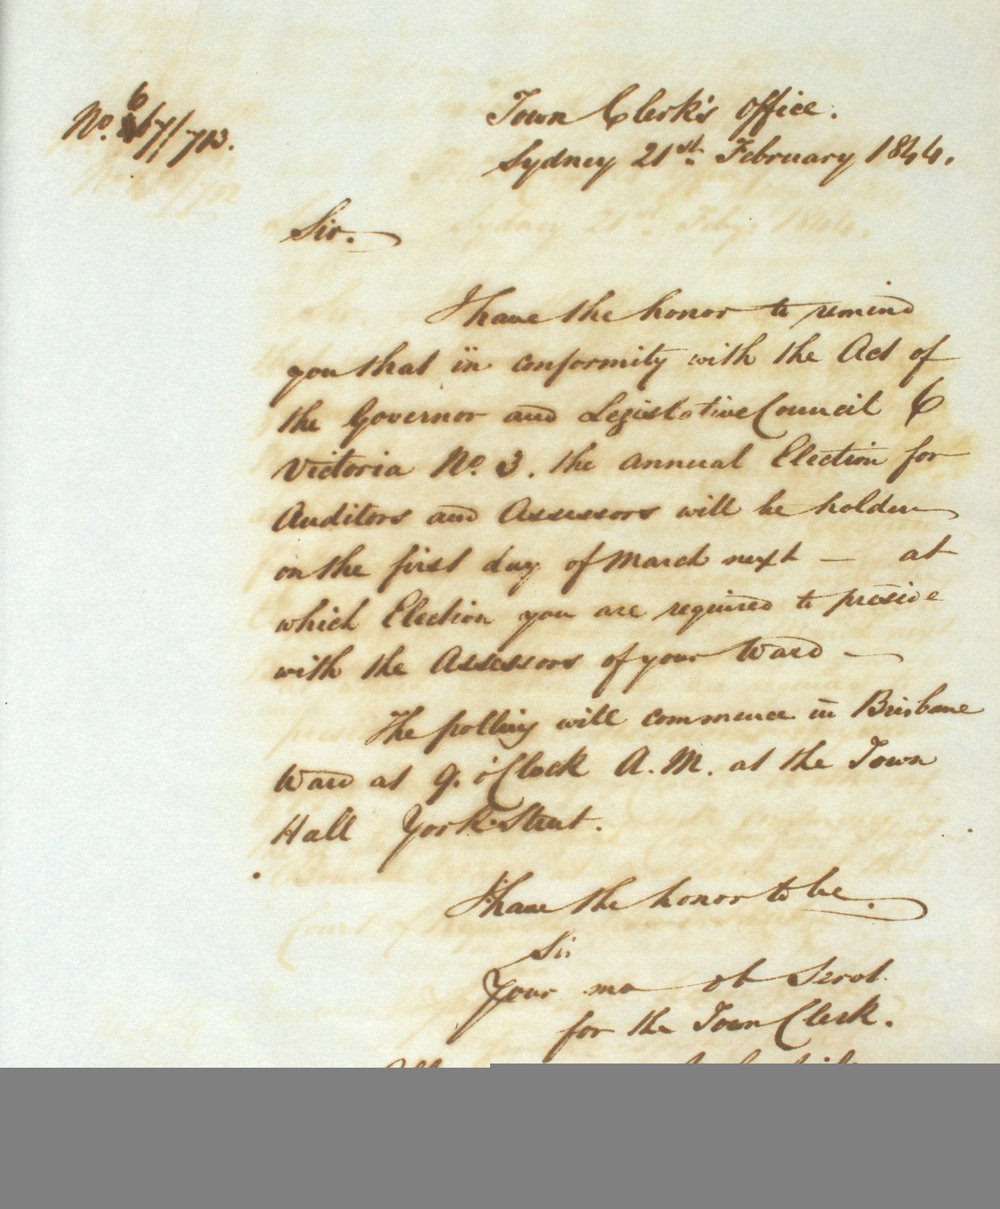 Town Clerk's Office.
Sydney 21st February 1844.
Sir.
I have the honor to remind
you that in conformity with the Act of
the Governor and Legislative Council 6
Victoria No. 3. the annual Election for
Auditors and Assessors will be holden
on the first day of March next — at
which Election you are required to preside
with the Assessors of your Ward —
The polling will commence in Brisbane
Ward at 9. o'Clock A.M. at the Town
Hall York Street.
I have the honor to be.
Sir
Your mo ob Servt.
for the Town Clerk.